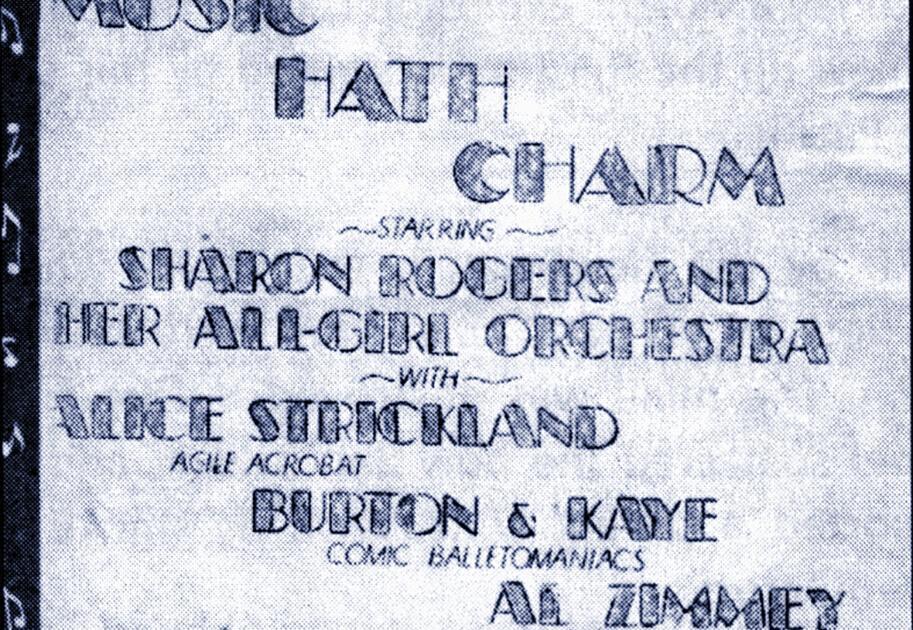 MUSIC
HATH
CHARM
STARRING
SHARON ROGERS AND
HER ALL-GIRL ORCHESTRA
WITH
ALICE STRICKLAND
AGILE ACROBAT
BURTON & KAYE
COMIC BALLETOMANIACS
AL ZIMMEY